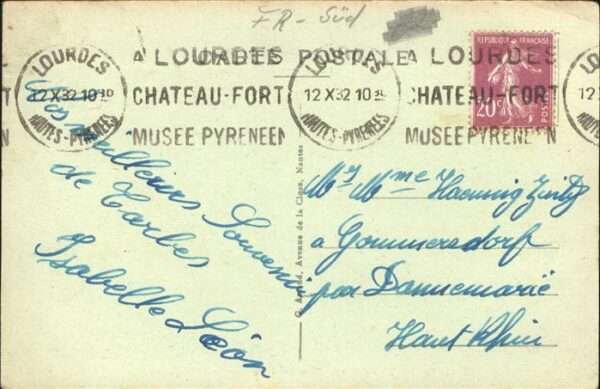 FR - Süd
CARTE POSTALE
LOURDES
12 X 32 10
HAUTES-PYRENEES
A LOURDES
CHATEAU-FORT
MUSEE PYRENEEN
LOURDES
12 X 32 10
HAUTES-PYRENEES
A LOURDES
CHATEAU-FORT
MUSEE PYRENEEN
12
REPUBLIQUE FRANÇAISE
20c
POSTES
meilleurs Souvenirs
de Tarbes
Isabelle Léon
Avenue de la Close, Nantes
Mr Mme Haennig
à Gommersdorf
par Dannemarie
Haut Rhin